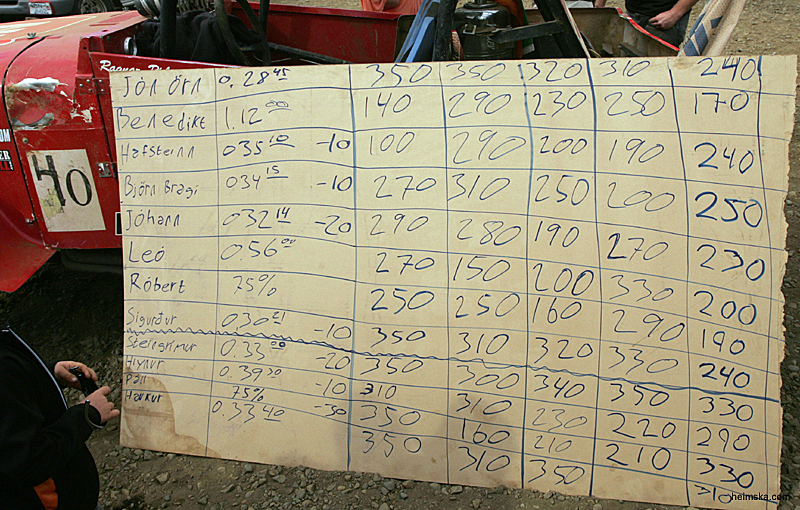 Ragnar
40
Jón Örn 0.28 45 350 350 320 310 240
Benedikt 1.12 00 140 290 230 250 170
Hafsteinn 035 10 -10 100 290 200 190 240
Björn Bragi 034 15 -10 270 310 250 200 250
Jóhann 032 14 -20 290 280 190 270 230
Leó 0.56 00 270 150 200 330 200
Róbert 75% 250 250 160 290 190
Sigurður 030 21 -10 350 310 320 330 240
Steingrímur 0.33 00 -20 350 300 340 350 330
Hlynur 0.39 20 -10 310 310 230 220 290
Páll 75% 350 160 210 210 330
Haukur 0.33 40 -30 350 310 350
helmska.com